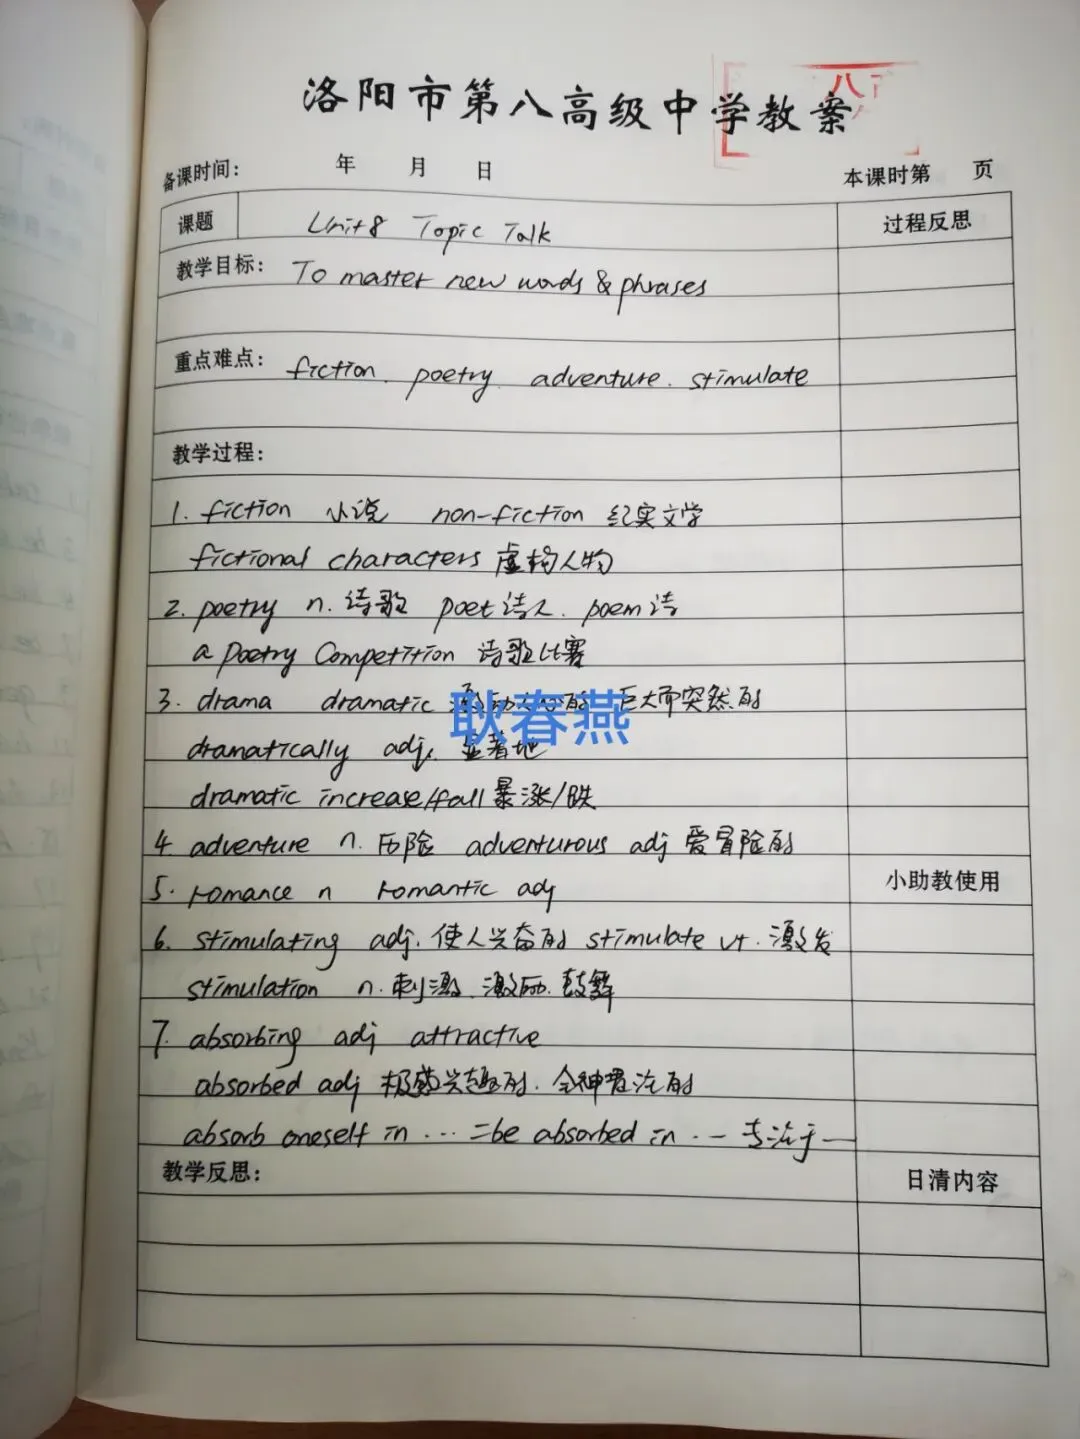 洛阳市第八高级中学教案
备课时间： 年 月 日 本课时第 页
课题 Unit8 Topic Talk 过程反思
教学目标： To master new words & phrases
重点难点： fiction. poetry. adventure. stimulate
教学过程：
1. fiction 小说 non-fiction 纪实文学
fictional characters 虚构人物
2. poetry n. 诗歌 poet 诗人. poem 诗
a poetry Competition 诗歌比赛
3. drama dramatic 巨大而突然的
耿春燕
dramatically adj. 显著地
dramatic increase/fall 暴涨/跌
4. adventure n. 历险 adventurous adj 爱冒险的
5. romance n romantic adj 小助教使用
6. stimulating adj. 使人兴奋的 stimulate vt. 激发
stimulation n. 刺激. 激励. 鼓舞
7. absorbing adj attractive
absorbed adj 极感兴趣的. 全神贯注的
absorb oneself in ... = be absorbed in ... 专注于
教学反思： 日清内容